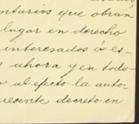 ntarios que obran
lugar en derecho
interesados á es-
ahora y en todo
al efecto la auto-
resente decreto en